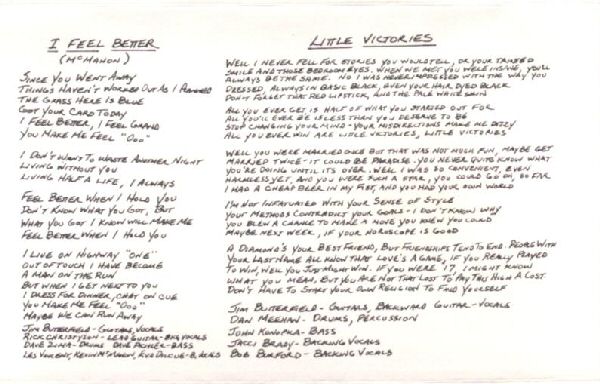 I FEEL BETTER
(McMAHON)
SINCE YOU WENT AWAY
THINGS HAVEN'T WORKED OUT AS I PLANNED
THE GRASS HERE IS BLUE
GOT YOUR CARD TODAY
I FEEL BETTER, I FEEL GRAND
YOU MAKE ME FEEL "OOO"
I DON'T WANT TO WASTE ANOTHER NIGHT
LIVING WITHOUT YOU
LIVING HALF A LIFE, I ALWAYS
FEEL BETTER WHEN I HOLD YOU
DON'T KNOW WHAT YOU GOT, BUT
WHAT YOU GOT I KNOW WILL MAKE ME
FEEL BETTER WHEN I HOLD YOU
I LIVE ON HIGHWAY "ONE"
OUT OF TOUCH I HAVE BECOME
A MAN ON THE RUN
BUT WHEN I GET NEXT TO YOU
I DRESS FOR DINNER, CHAT ON CUE
YOU MAKE ME FEEL "OOO"
MAYBE WE CAN RUN AWAY
JIM BUTERFIELD - GUITARS, VOCALS
RICK CHRISTYSON - LEAD GUITAR - BKG VOCALS
DAVE ZINA - DRUMS DAVE PALMER - BASS
LES VINCENT, KEVIN McMAHON, - B. VOCALS
LITTLE VICTORIES
WELL I NEVER FELL FOR STORIES YOU WOULD TELL, OR YOUR TWISTED
SMILE AND THOSE BEDROOM EYES. WHEN WE MET YOU WERE INSANE, YOU'LL
ALWAYS BE THE SAME. NO I WAS NEVER IMPRESSED WITH THE WAY YOU
DRESSED, ALWAYS IN BASIC BLACK, EVEN YOUR HAIR DYED BLACK
DON'T FORGET THAT RED LIPSTICK, AND THE PALE WHITE SKIN
ALL YOU EVER GET IS HALF OF WHAT YOU STARTED OUT FOR
ALL YOU'LL EVER BE IS LESS THAN YOU DESERVE TO BE
STOP CHANGING YOUR MIND - YOUR MISDIRECTIONS MAKE ME DIZZY
ALL YOU EVER WIN ARE LITTLE VICTORIES, LITTLE VICTORIES
WELL YOU WERE MARRIED ONCE BUT THAT WAS NOT MUCH FUN, MAYBE GET
MARRIED TWICE - IT COULD BE PARADISE. YOU NEVER QUITE KNOW WHAT
YOU'RE DOING UNTIL IT'S OVER. WELL I WAS SO CONVENIENT, EVEN
HARMLESS YET, AND YOU WERE SUCH A STAR, YOU COULD GO ON, SO FAR
I HAD A CHEAP BEER IN MY FIST, AND YOU HAD YOUR OWN WORLD
I'M NOT INFATUATED WITH YOUR SENSE OF STYLE
YOUR METHODS CONTRADICT YOUR GOALS - I DON'T KNOW WHY
YOU BLEW A CHANCE TO MAKE A MOVE YOU KNEW YOU COULD
MAYBE NEXT WEEK, IF YOUR HOROSCOPE IS GOOD
A DIAMOND'S YOUR BEST FRIEND, BUT FRIENDSHIPS TEND TO END. WITH
YOUR LAST NAME ALL KNOW THAT LOVE'S A GAME, IF YOU REALLY PLAYED
TO WIN, WELL YOU JUST MIGHT WIN. IF YOU WERE 17, I MIGHT KNOW
WHAT YOU MEAN, BUT YOU ARE NOT THAT LOST TO PAY THIS HIGH A COST
DON'T HAVE TO START YOUR OWN RELIGION TO FIND YOURSELF
JIM BUTERFIELD - GUITARS, BACKWARD GUITAR - VOCALS
DAN MEEHAN - DRUMS, PERCUSSION
JOHN KONOPKA - BASS
JACCI BRADY - BACKING VOCALS
BOB BURFORD - BACKING VOCALS